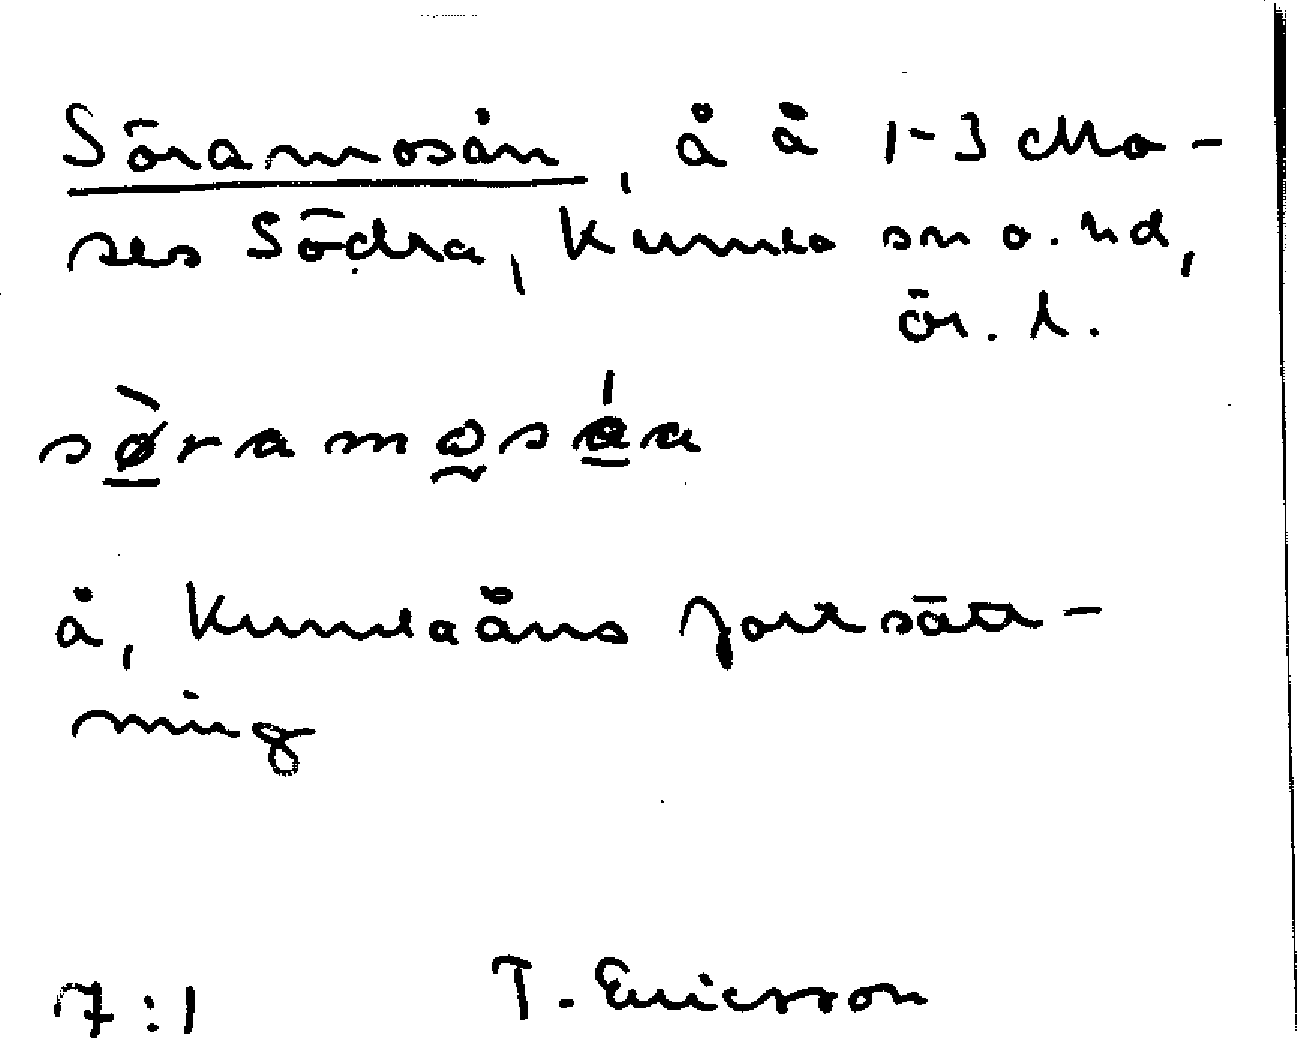 Söramosån, å å 1-3 Mo-
ses Södra, Kumla sn o. hd,
ör. l.
sø̀ramosáa
å, Kumlaåns fortsätt-
ning
7:1 T. Ericsson